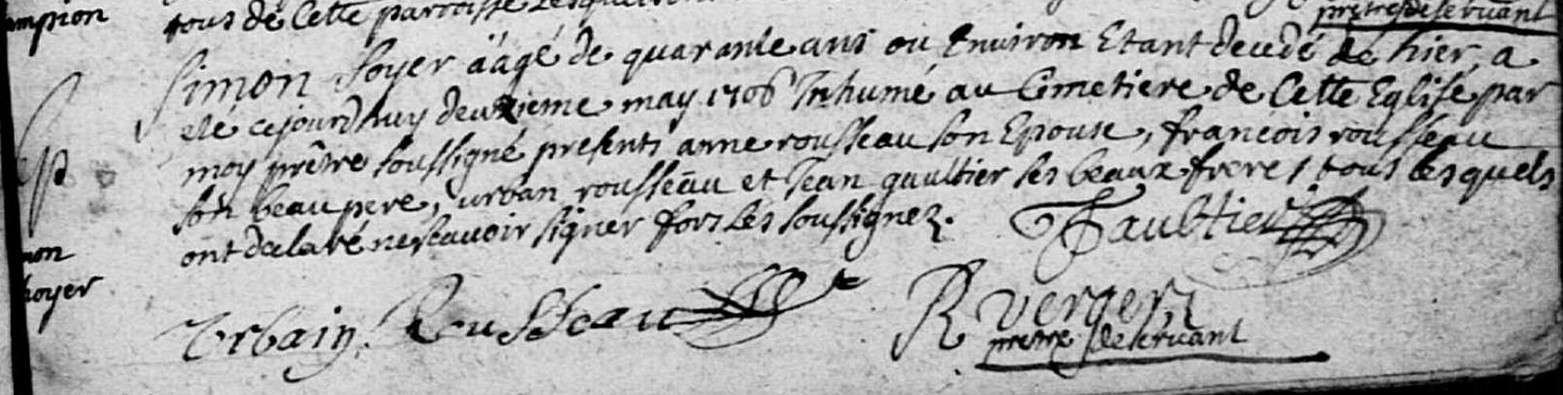 ampion
tous de Cette parroisse
prêtre deservant
Simon foyer âagé de quarante ans ou Environ Etant decedé de hier, a
eté cejourdhuy deuxieme may 1706 Inhumé au Cimetiere de Cette Eglise par
moy prêtre soussigné presents anne rousseau son Epouse, francois rousseau
son beau pere, urban rousseau et Jean gaultier ses beaux frere, tous lesquels
ont declaré ne scavoir signer fors les soussignez.
Gaultier
Urbain Rousseau
R Verger
prêtre deservant